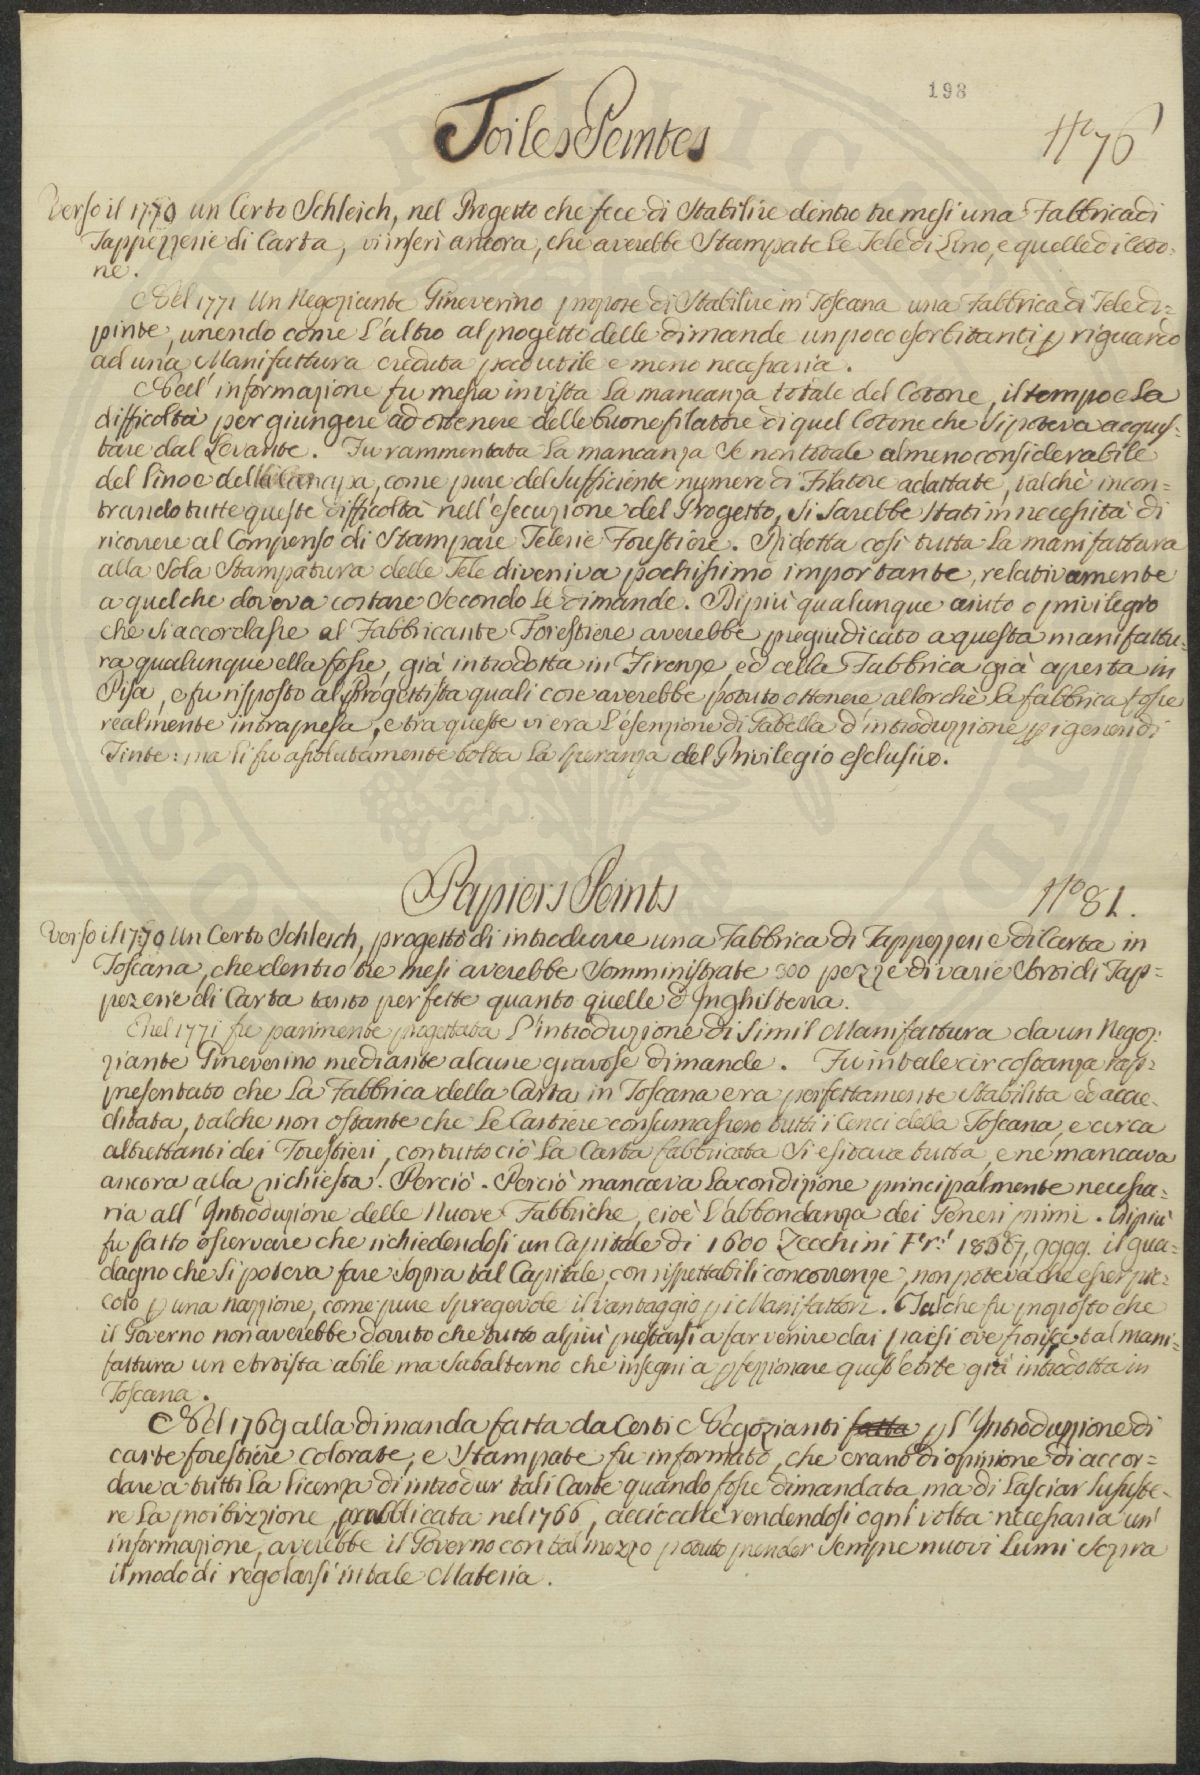 198
Toiles Peintes
N.º 76
Verso il 1770 un Certo Schleich, nel Progetto che fece di Stabilire dentro tre mesi una Fabbrica di
Tappezzerie di Carta, vi inserì ancora, che averebbe Stampate le Tele di Lino, e quelle di Coto=
ne.
Nel 1771 Un Negoziante Gineverino propose di Stabilire in Toscana una Fabbrica di Tele di=
pinte, unendo come L'altro al progetto delle dimande un poco esorbitanti p riguardo
ad una Manifattura creduta poco utile e meno necessaria.
Nell' informazione fu messa in vista La mancanza totale del Cotone, il tempo e La
difficoltà per giungere ad ottenere delle buone filatore di quel Cotone che Si poteva acqui=
stare dal Levante. Fu rammentata La mancanza Se non totale almeno considerabile
del Lino e della Canapa, come pure del Sufficiente numero di Filatore adattate, talchè incon=
trando tutte queste difficoltà nell'esecuzione del Progetto, Si Sarebbe Stati in necessità di
ricorrere al Compenso di Stampare Telerie Forestiere. Ridotta così tutta La manifattura
alla Sola Stampatura delle Tele diveniva pochissimo importante, relativamente
a quel che doveva costare Secondo Le dimande. Di più qualunque aiuto o privilegio
che Si accordasse al Fabbricante Forestiere averebbe pregiudicato a questa manifattu=
ra qualunque ella fosse, già introdotta in Firenze, ed alla Fabbrica già aperta in
Pisa, e fu risposto al Progettista quali cose averebbe potuto ottenere allorchè La fabbrica fosse
realmente intrapresa, e tra queste vi era L'esenzione di Gabella d'introduzzione p i generi di
Tinte: ma li fu assolutamente tolta La Speranza del Privilegio esclusivo.
Papiers Peints
N.º 81.
Verso il 1770 Un Certo Schleich, progettò di introdurre una Fabbrica di Tappezzerie di Carta in
Toscana, che dentro tre mesi averebbe Somministrate 300 pezze di varie Sorti di Tap=
pezerie di Carta tanto perfette quanto quelle d'Inghilterra.
Nel 1771 fu parimente progettata L'introduzione di Simil Manifattura da un Negoz=
ziante Gineverino mediante alcune gravose dimande. Fu in tale circostanza rap=
presentato che La Fabbrica della Carta in Toscana era perfettamente Stabilita ed accre=
ditata, talche non ostante che Le Cartiere consumassero tutti i Cenci della Toscana, e circa
altrettanti dei Forestieri, con tutto ciò La Carta fabbricata Si esitava tutta, e ne mancava
ancora alla richiesta. Perciò. Perciò mancava La condizione principalmente necessa=
ria all' Introduzione delle Nuove Fabbriche, cioè L'abbondanza dei Generi primi. Di più
fu fatto osservare che richiedendosi un Capitale di 1600 Zecchini il gua=
dagno che Si poteva fare Sopra tal Capitale, con rispettabili concorrenze, non poteva che esser pic=
colo p una nazzione, come pure spregevole il vantaggio p i Manifattori. Talche fu proposto che
il Governo non averebbe dovuto che tutto al più prestarsi a far venire dai paesi ove fiorisce tal mani=
fattura un Artista abile ma Subalterno che insegni a pfezzionare quest'arte già introdotta in
Toscana.
Nel 1769 alla dimanda fatta da Certi Negozianti fatta p l'Introduzzione di
carte forestiere colorate, e Stampate fu informato, che erano di opinione di accor=
dare a tutti La licenza di introdur tali Carte quando fosse dimandata ma di Lasciar Sussiste=
re La proibizzione, pubblicata nel 1766, acciocchè rendendosi ogni volta necessaria un'
informazione, averebbe il Governo con tal mezzo potuto prender Sempre nuovi Lumi Sopra
il modo di regolarsi in tale Materia.